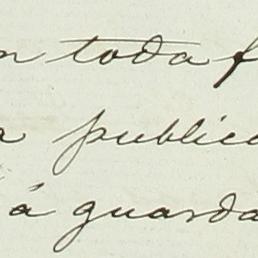 n toda f
a publica
á guarda